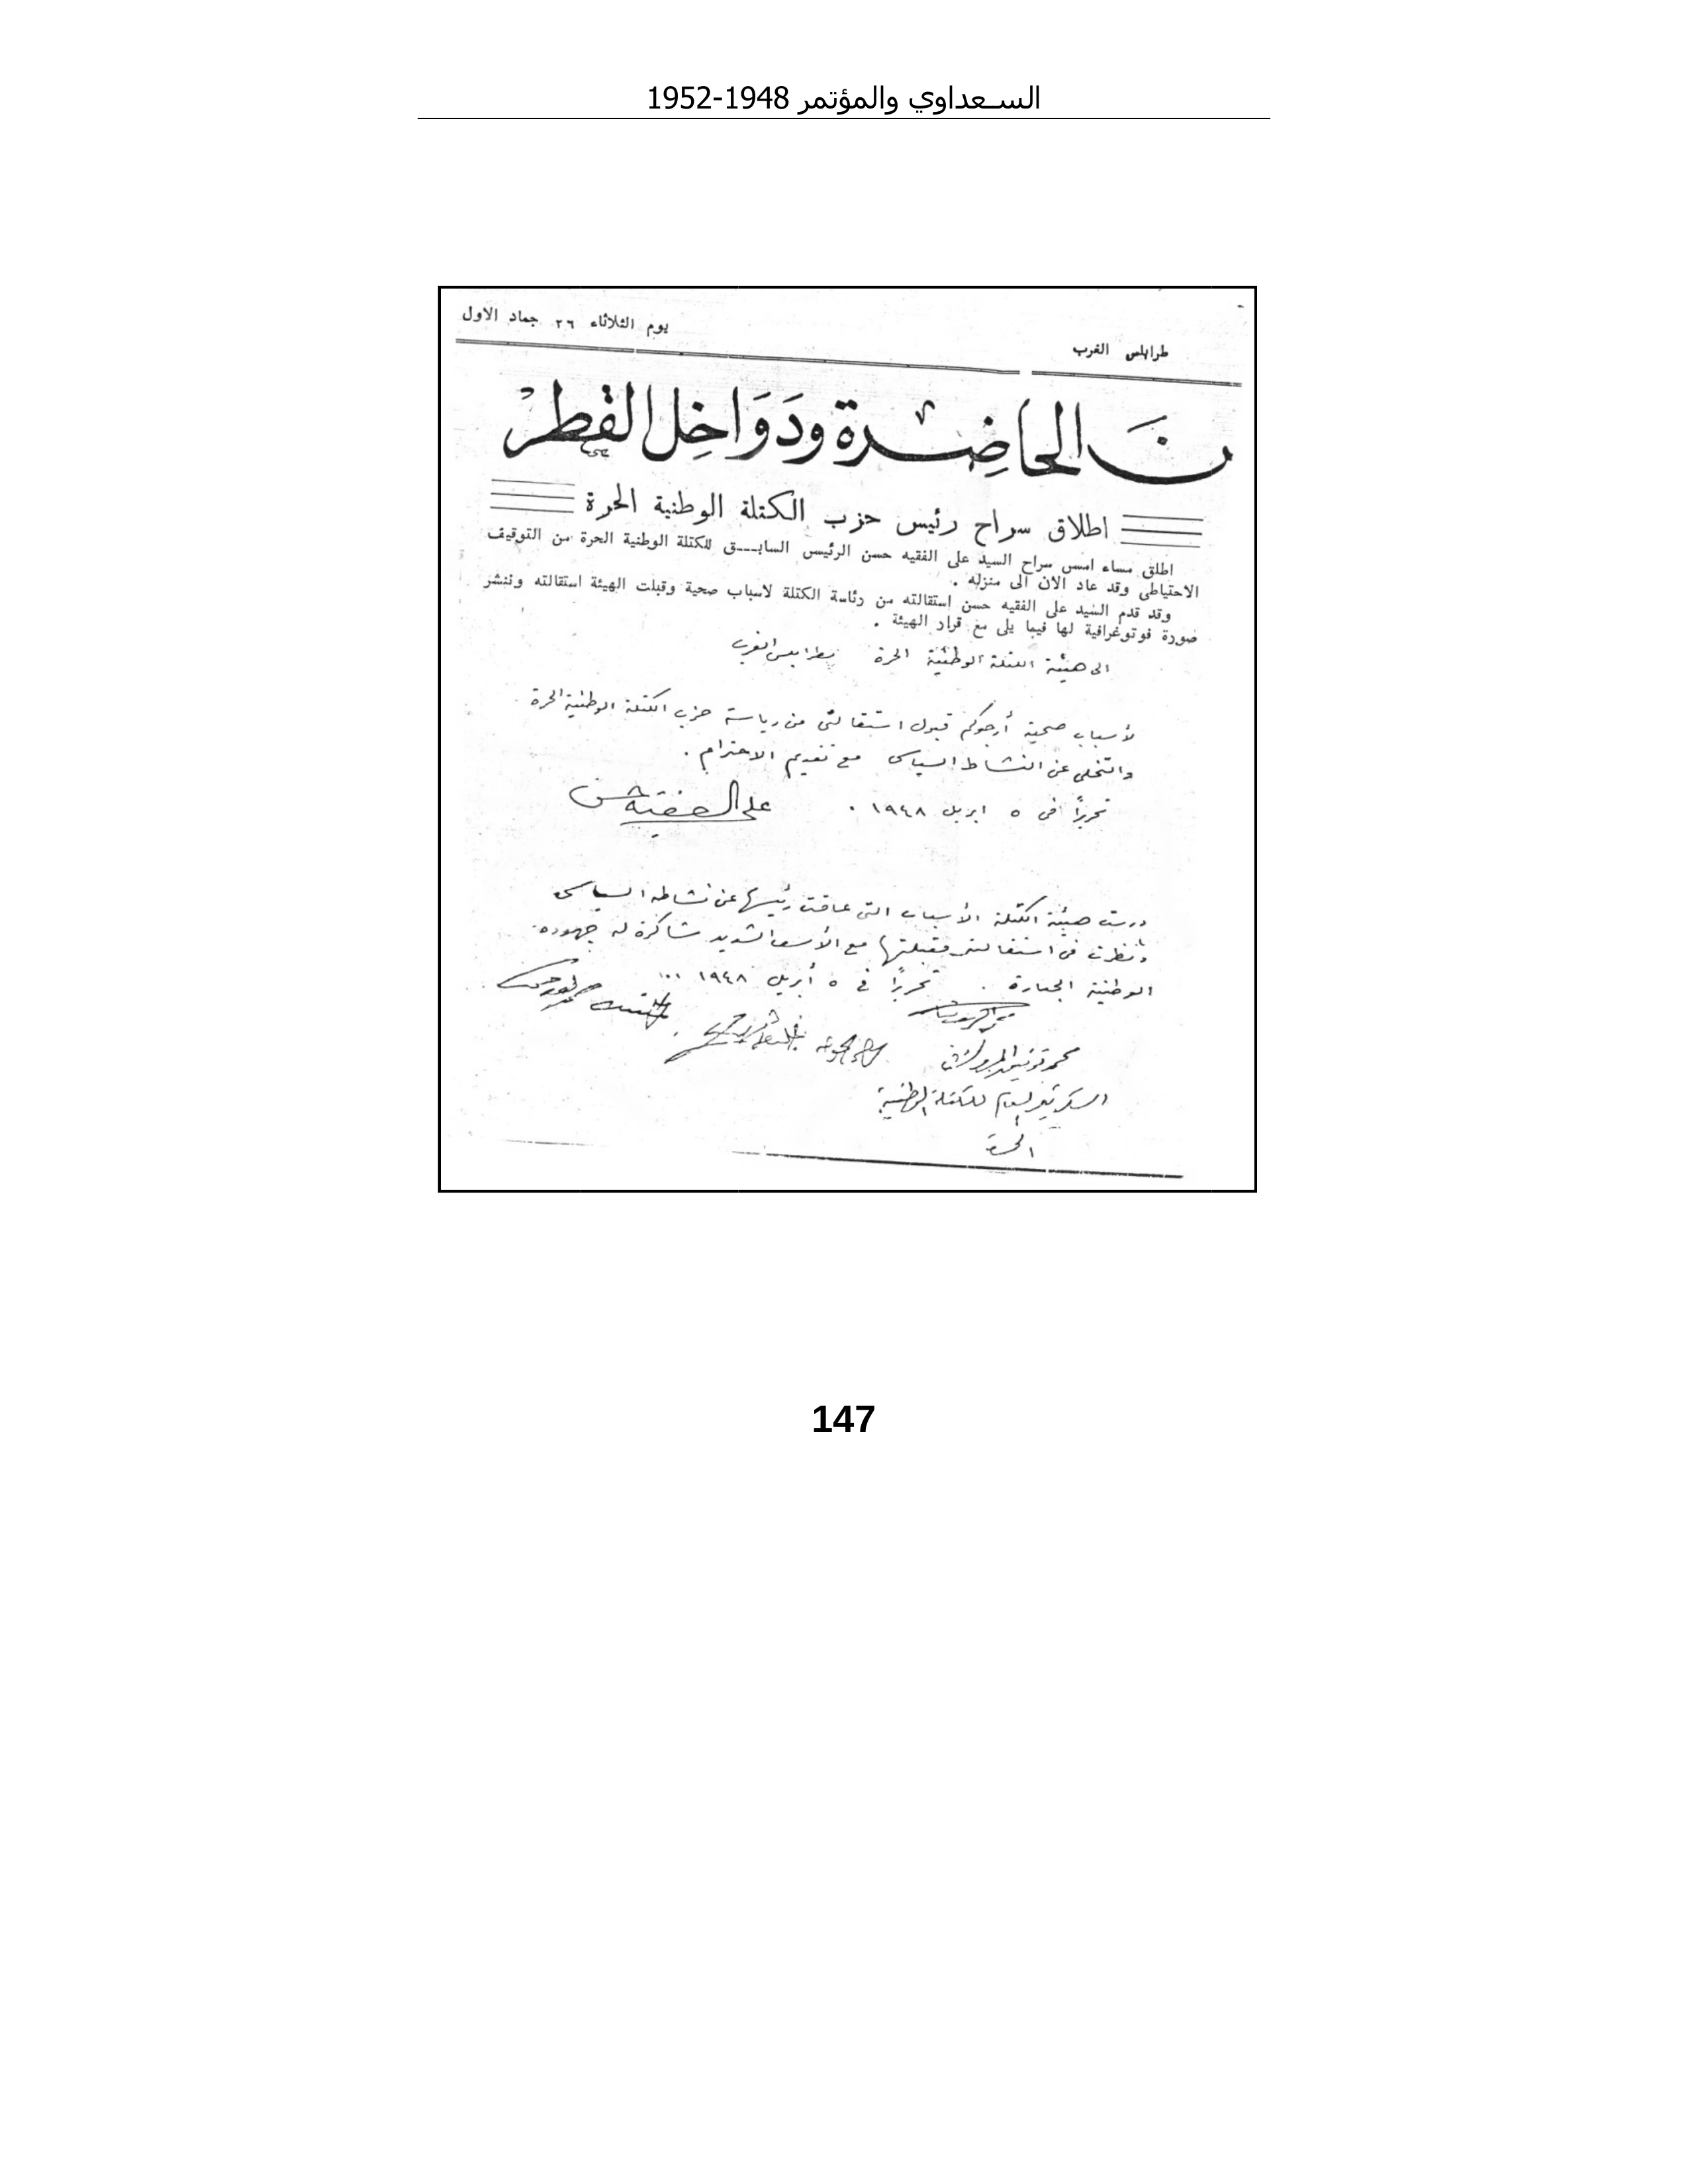 السعداوي والمؤتمر 1948-1952
طرابلس الغرب
يوم الثلاثاء ٢٦ جماد الاول
الحَاضِرة ودَوَاخِل القطرْ
اطلاق سراح رئيس حزب الكتلة الوطنية الحرة
اطلق مساء امس سراح السيد على الفقيه حسن الرئيس السابق للكتلة الوطنية الحرة من التوقيف
الاحتياطى وقد عاد الان الى منزله .
وقد قدم السيد على الفقيه حسن استقالته من رئاسة الكتلة لاسباب صحية وقبلت الهيئة استقالته وننشر
صورة فوتوغرافية لها فيما يلى مع قرار الهيئة .
الى هيئة الكتلة الوطنية الحرة بطرابلس الغرب
لأسباب صحية أرجوكم قبول استقالتى من رياسة حزب الكتلة الوطنية الحرة
والتخلى عن النشاط السياسى مع تقديم الاحترام .
تحريراً فى ٥ ابريل ١٩٤٨ .
على الفقيه حسن
درست هيئة الكتلة الأسباب التى عاقت رئيسها عن نشاطه السياسى
ونظرت فى استقالته فقبلتها مع الأسف الشديد شاكرة له جهوده
الوطنية الجبارة . تحريراً فى ٥ أبريل ١٩٤٨
محمد توفيق المبروك
السكرتير العام للكتلة الوطنية
الحرة
147